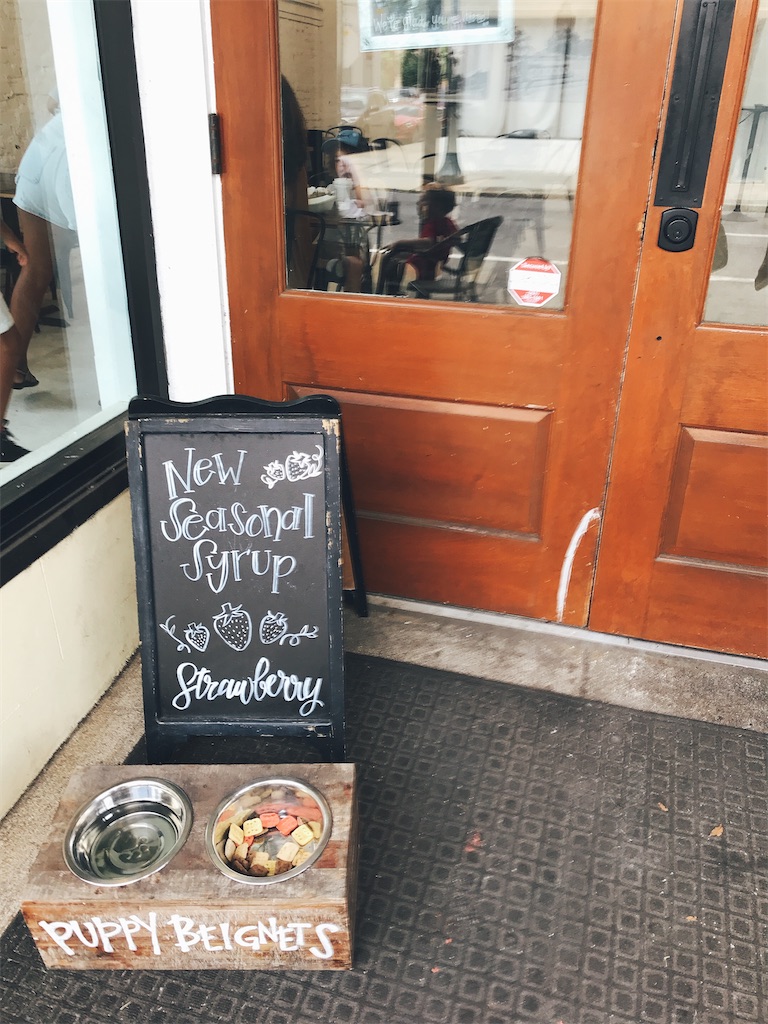 New
Seasonal
Syrup
Strawberry
PUPPY BEIGNETS